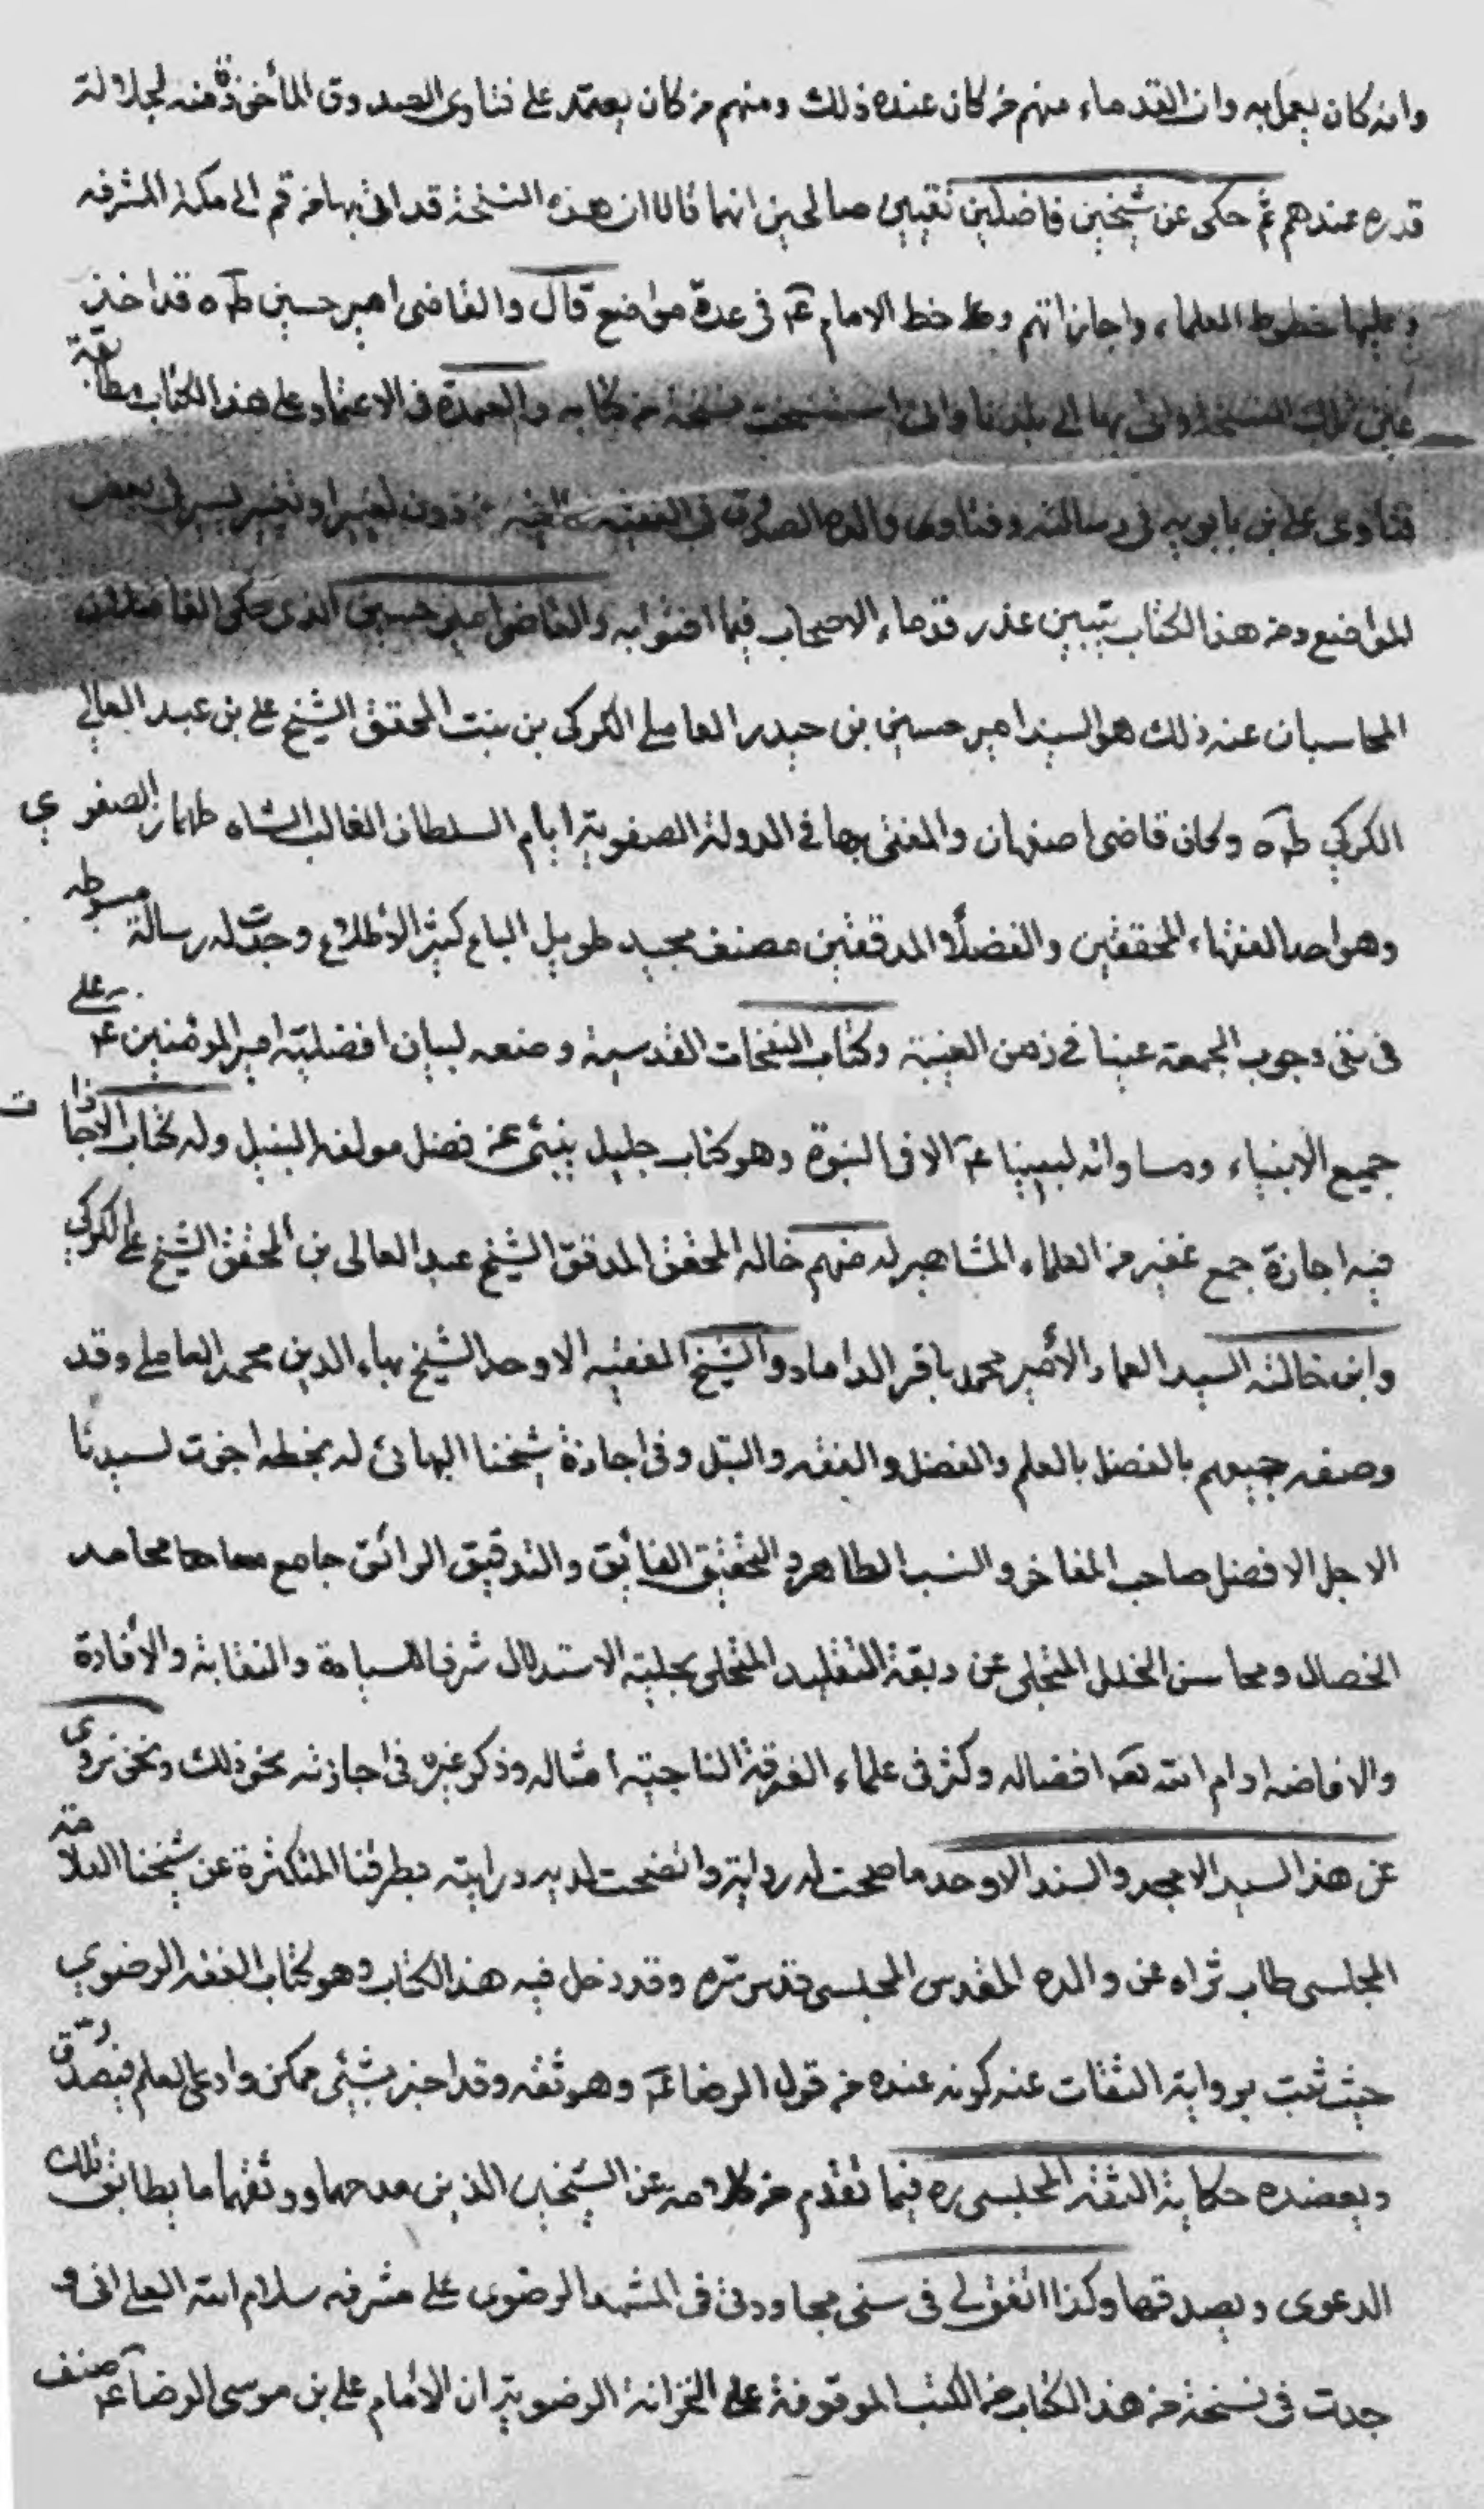 وانه كان يعمل به وان القدماء منهم من كان عنده ذلك ومنهم من كان يعتمد على فتاوى الصدوق المأخوذة منه لجلالة
قدره عندهم ثم حكى عن شيخين فاضلين ثقتين صالحين انهما قالا ان هذه النسخة قد اتى بها من قم الى مكة المشرفه
وعليها خطوط العلماء واجازاتهم وخط الامام ع في عدة مواضع قال والقاضى امير حسين طره قد اخذ
من تلك النسخة واتى بها الى بلدنا وانى استنسخت نسخة من كتابه والعمدة في الاعتماد على هذا الكتاب مطابقة
فتاوى على بن بابويه في رسالته وفتاوى والده الصدوق في الفقيه من دون تغيير او تغيير يسير في بعض
المواضع ومن هذا الكتاب تبين عذر قدماء الاصحاب فيما افتوا به والقاضى امير حسين الذى حكى الفاضلان
المجلسيان عنه ذلك هو السيد امير حسين بن حيدر العاملى الكركى بن بنت المحقق الشيخ على بن عبد العالي
الكركي طره وكان قاضى اصفهان والمفتى بها في الدولة الصفوية ايام السلطان الغالب الشاه طهماز الصفوي
وهو احد الفقهاء المحققين والفضلاء المدققين مصنف مجيد طويل الباع كثير الأطلاع وجدت له رسالة مبسوطه
في نفى وجوب الجمعة عينا في زمن الغيبة وكتاب النفحات القدسية وضعه لبيان افضلية امير المؤمنين ع على
جميع الانبياء ومساواته لنبينا ع الا في النبوة وهو كتاب جليل ينبئ عن فضل مولفه النبيل وله كتاب الاجازات
فيه اجازة جمع غفير من العلماء المشاهير له منهم خاله المحقق المدقق الشيخ عبد العالى بن المحقق الشيخ على الكركي
وابن خالته السيد العماد الأمير محمد باقر الداماد والشيخ الفقيه الاوحد الشيخ بهاء الدين محمد العاملى وقد
وصفه جميعهم بالفضل بالعلم والفضل والفقه والنبل وفى اجازة شيخنا البهائى له بخطه اجزت لسيدنا
الاجل الافضل صاحب المفاخر والنسب الطاهر والتحقيق الفايق والتدقيق الرائق جامع محامد
الخصال ومحاسن الخلال المتخلى عن ربقة التقليد المتحلى بحلية الاستدلال شرفا للسيادة والنقابة والأفادة
والافاضه ادام الله تعم افضاله وكثر في علماء الفرقة الناجية امثاله وذكر غيره في اجازته نحو ذلك ونحن نروى
عن هذا السيد الامجد والسند الاوحد ما صحت له رواية واتضحت لديه درايته بطرقنا المتكثرة عن شيخنا العلامة
المجلسى طاب ثراه عن والده المقدس المجلسى قدس سره وقد دخل فيه هذا الكتاب وهو كتاب الفقه الرضوي
حيث ثبت برواية الثقات عنه كونه عنده من قول الرضا ع وهو ثقه وقد اخبر بشئ ممكن وادعى العلم فيصدق
ويعضده حكاية الثقة المجلسى ره فيما تقدم من كلامه عن الشيخين الذين مدحهما ووثقهما ما يطابق تلك
الدعوى ويصدقها وكذا اتفق لي في سنى مجاورتى في المشهد الرضوى على مشرفه سلام الله العلى انى و
جدت في نسخة من هذا الكتاب من الكتب الموقوفة على الخزانة الرضوية ان الأمام على بن موسى الرضا ع صنف